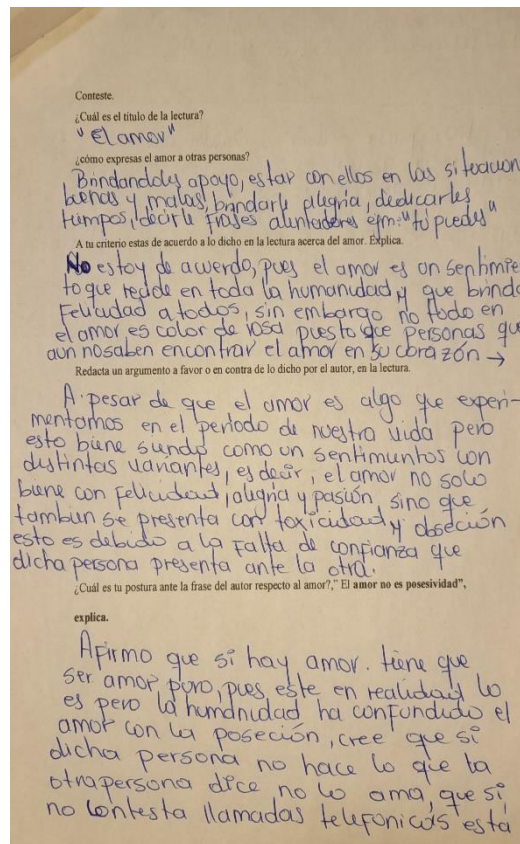 Conteste.
¿Cuál es el titulo de la lectura?
"El amor"
¿cómo expresas el amor a otras personas?
Brindandoles apoyo, estar con ellos en las situacion
buenas y malas, brindarle alegría, dedicarles
tiempos, decirle frases alentadores ejm: "tú puedes"
A tu criterio estas de acuerdo a lo dicho en la lectura acerca del amor. Explica.
No estoy de acuerdo, pues el amor es un sentimie
to que recide en toda la humanidad y que brinda
Felicidad a todos, sin embargo no todo en
el amor es color de rosa puesto que personas que
aun no saben encontrar el amor en su corazón →
Redacta un argumento a favor o en contra de lo dicho por el autor, en la lectura.
A pesar de que el amor es algo que experi-
mentamos en el periodo de nuestra vida pero
esto biene siendo como un sentimientos con
distintas variantes, es decir, el amor no solo
biene con felicidad, alegria y pasión sino que
tambien se presenta con toxicidad y obseción
esto es debido a la Falta de confianza que
dicha persona presenta ante la otra.
¿Cuál es tu postura ante la frase del autor respecto al amor?," El amor no es posesividad",
explica.
Afirmo que si hay amor. tiene que
ser amor puro, pues este en realidad lo
es pero la humanidad ha confundido el
amor con la poseción, cree que si
dicha persona no hace lo que la
otra persona dice no lo ama, que si
no contesta llamadas telefonicas está